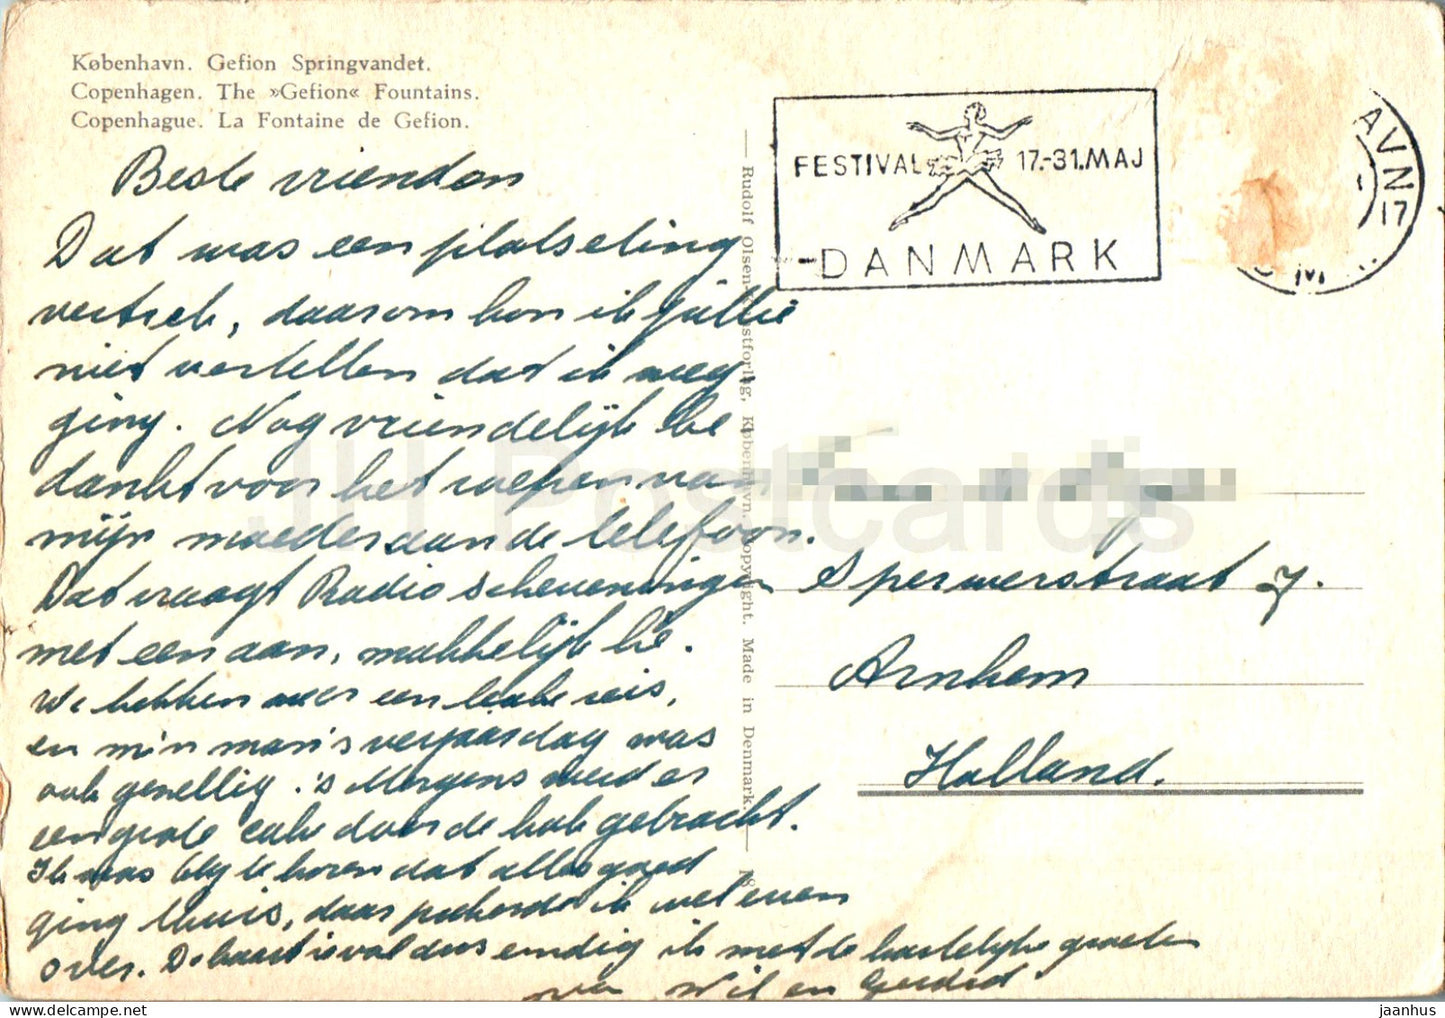 København. Gefion Springvandet.
Copenhagen. The »Gefion« Fountains.
Copenhague. La Fontaine de Gefion.
Beste vrienden
Dat was een plotseling
vertrek, daarom kon ik jullie
niet vertellen dat ik weg
ging. Nog vriendelijk be
dankt voor het roepen van
mijn moeder aan de telefoon.
Dat vraagt Radio Scheveningen
met een aan, makkelijk hé.
We hebben weer een leuke reis,
en m'n man's verjaardag was
ook gezellig. 's Morgens werd er
een grote cake door de kok gebracht.
Ik was blij te horen dat alles goed
ging thuis, daar piekerde ik wel even
over. De kaart is vol dus eindig ik met de hartelijke groeten
van Wil en Gerard
Rudolf Olsens Kunstforlag, København. Copyright. Made in Denmark.
FESTIVAL 17.-31.MAJ
DANMARK
AVN
17
Sperwerstraat 7.
Arnhem
Holland.
JH Postcards
delcampe.net
jaanhus